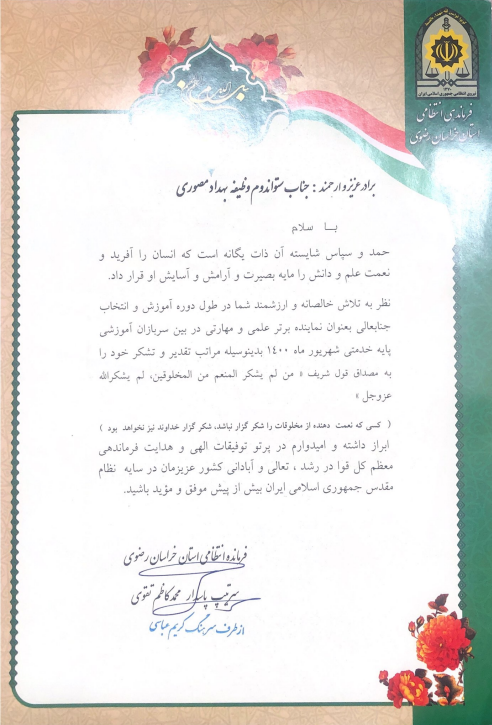 بسم الله الرحمن الرحیم
۱۳۷۰
نیروی انتظامی جمهوری اسلامی ایران
فرماندهی انتظامی
استان خراسان رضوی
برادر عزیز و ارجمند : جناب ستواندوم وظیفه بهداد منصوری
با سلام
حمد و سپاس شایسته آن ذات یگانه است که انسان را آفرید و
نعمت علم و دانش را مایه بصیرت و آرامش و آسایش او قرار داد.
نظر به تلاش خالصانه و ارزشمند شما در طول دوره آموزش و انتخاب
جنابعالی بعنوان نماینده برتر علمی و مهارتی در بین سربازان آموزشی
پایه خدمتی شهریور ماه ۱۴۰۰ بدینوسیله مراتب تقدیر و تشکر خود را
به مصداق قول شریف « من لم یشکر المنعم من المخلوقین، لم یشکرالله
عزوجل »
( کسی که نعمت دهنده از مخلوقات را شکر گزار نباشد، شکر گزار خداوند نیز نخواهد بود )
ابراز داشته و امیدوارم در پرتو توفیقات الهی و هدایت فرماندهی
معظم کل قوا در رشد ، تعالی و آبادانی کشور عزیزمان در سایه نظام
مقدس جمهوری اسلامی ایران بیش از پیش موفق و مؤید باشید.
فرمانده انتظامی استان خراسان رضوی
سرتیپ پاسدار محمد کاظم تقوی
از طرف سرهنگ کریم عباسی